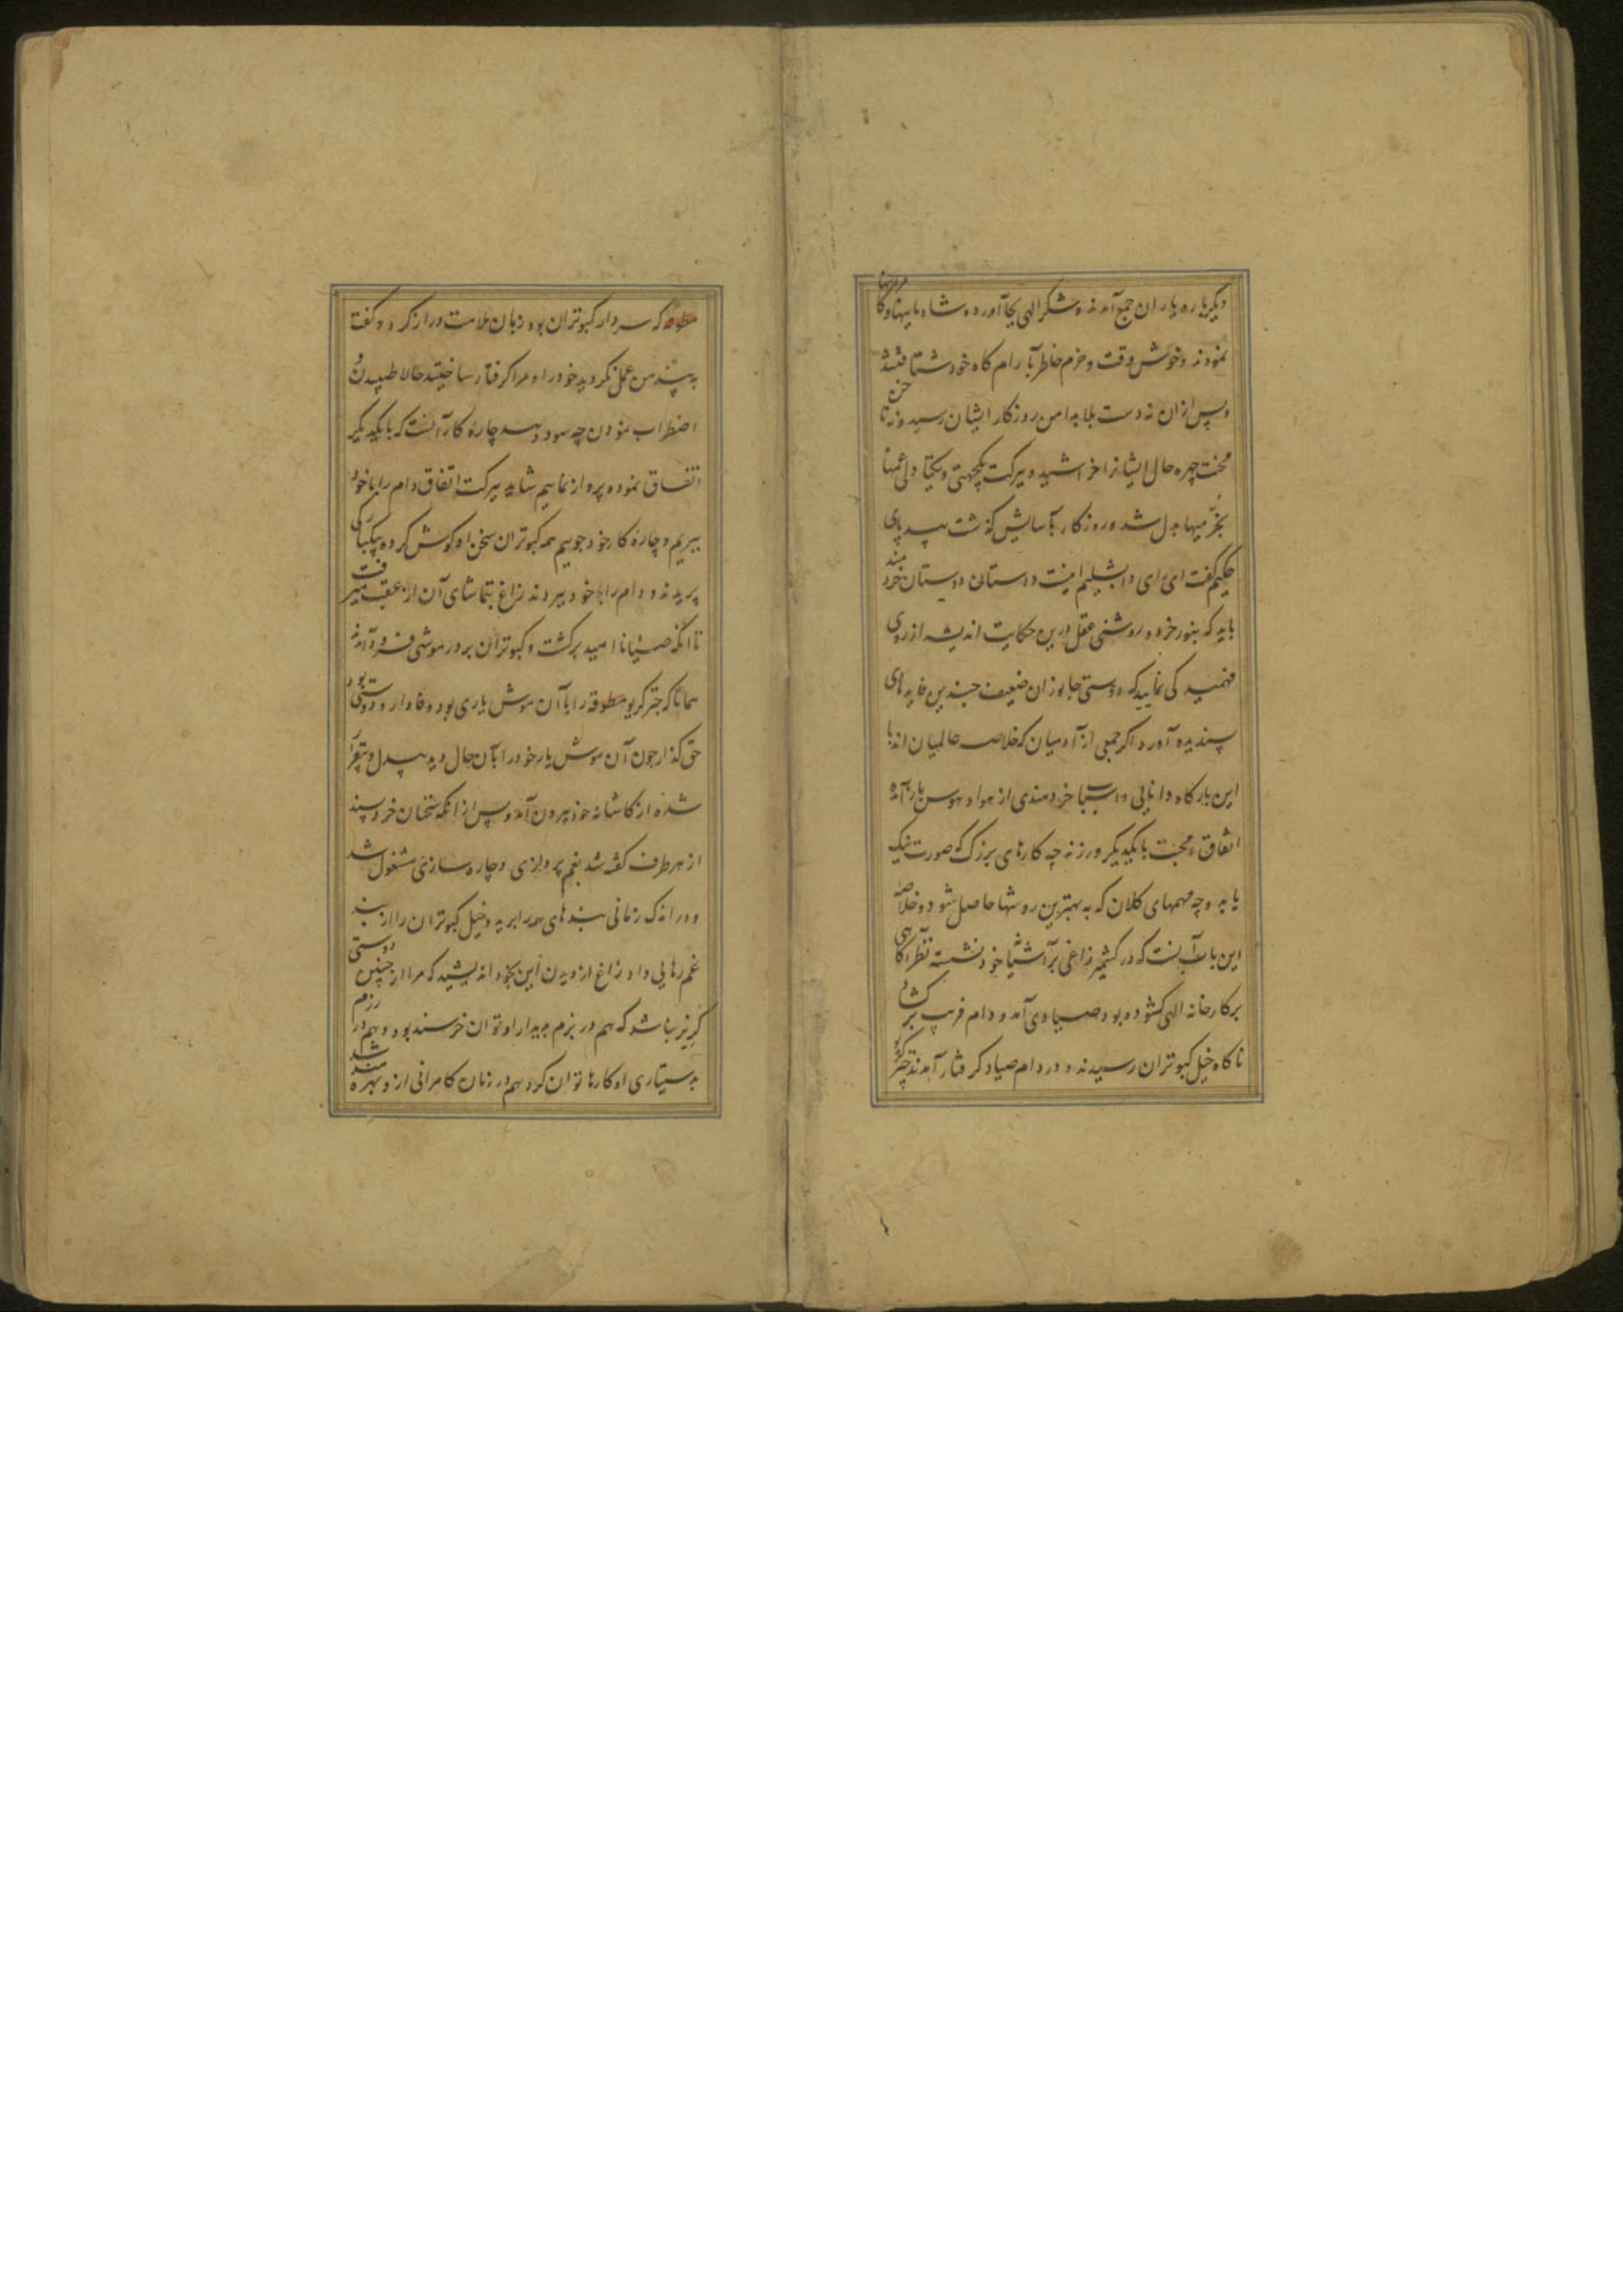 دیگر باره یاران جمع آمدند و شکر الهی بجا آورده شادمانیها و کامرانیها
نمودند و خوش وقت و خرم خاطر بآرام گاه خود شتافتند
و پس ازان نه دست بلا بدامن روزگار ایشان رسید و نه ناخن
محنت چهره حال ایشانرا خراشید و ببرکت یکجهتی و یکتادلی غمها
بخرمیها بدل شد و روزگار بآسایش گذشت بیدپای
حکیم گفت ای رای دابشلیم اینست داستان دوستان خردمند
باید که بنور خرد و روشنی عقل درین حکایت اندیشه از روی
فهمیدگی نمایید که دوستی جانوران ضعیف چندین فایدهای
پسندیده آورد اگر جمعی از آدمیان که خلاصه عالمیان اند با
این بارگاه دانایی و اسباب خردمندی از هوا و هوس باز آمده
اتفاق و محبت با یکدیگر ورزند چه کارهای بزرگ که صورت نیک
یابد و چه مهمهای کلان که به بهترین روشها حاصل شود و خلاصهٔ
این باب آنست که در کشمیر زاغی بر آشیانه خود نشسته نظر آگاهی
بر کارخانه الهی گشوده بود صیادی آمد و دام فریب بر کشاد
ناگاه خیل کبوتران رسیدند و در دام صیاد گرفتار آمدند چترگریو
مطوقه که سردار کبوتران بود زبان ملامت دراز کرد و گفت
به پند من عمل نکردید خود را و مرا گرفتار ساختید حالا طپیدن و
اضطراب نمودن چه سود دهد چارهٔ کار آنست که با یکدیگر
اتفاق نموده پرواز نماییم شاید ببرکت اتفاق دام را با خود
ببریم و چارهٔ کار خود جوییم همه کبوتران سخن او گوش کرده بیکبارگی
پریدند و دام را با خود ببردند زاغ بتماشای آن از عقب میرفت
تا آنکه صیاد ناامید برگشت و کبوتران بر در موشی فرود آمدند
همانا که چترگریو مطوقه را با آن موش یاری بود وفادار و دوستی بود
حق گذار چون آن موش یار خود را بآن حال دید بیدل و بیقرار
شده از کاشانه خود بیرون آمد و پس از آنکه سخنان خردپسند
از هر طرف گفته شد بغم پردازی و چاره سازی مشغول شد
و در اندک زمانی بندهای همه را برید و خیل کبوتران را از بند
غم رهایی داد زاغ از دیدن این بخود اندیشید که مرا از چنین دوستی
گریز نباشد که هم در بزم بدیدار او توان خرسند بود و هم در رزم
بدستیاری او کارها توان کرد هم در زمان کامرانی ازو بهره‌مند شد